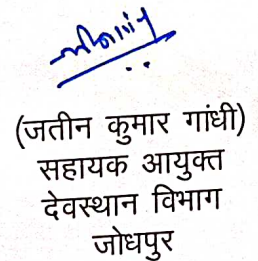 (जतीन कुमार गांधी)
सहायक आयुक्त
देवस्थान विभाग
जोधपुर